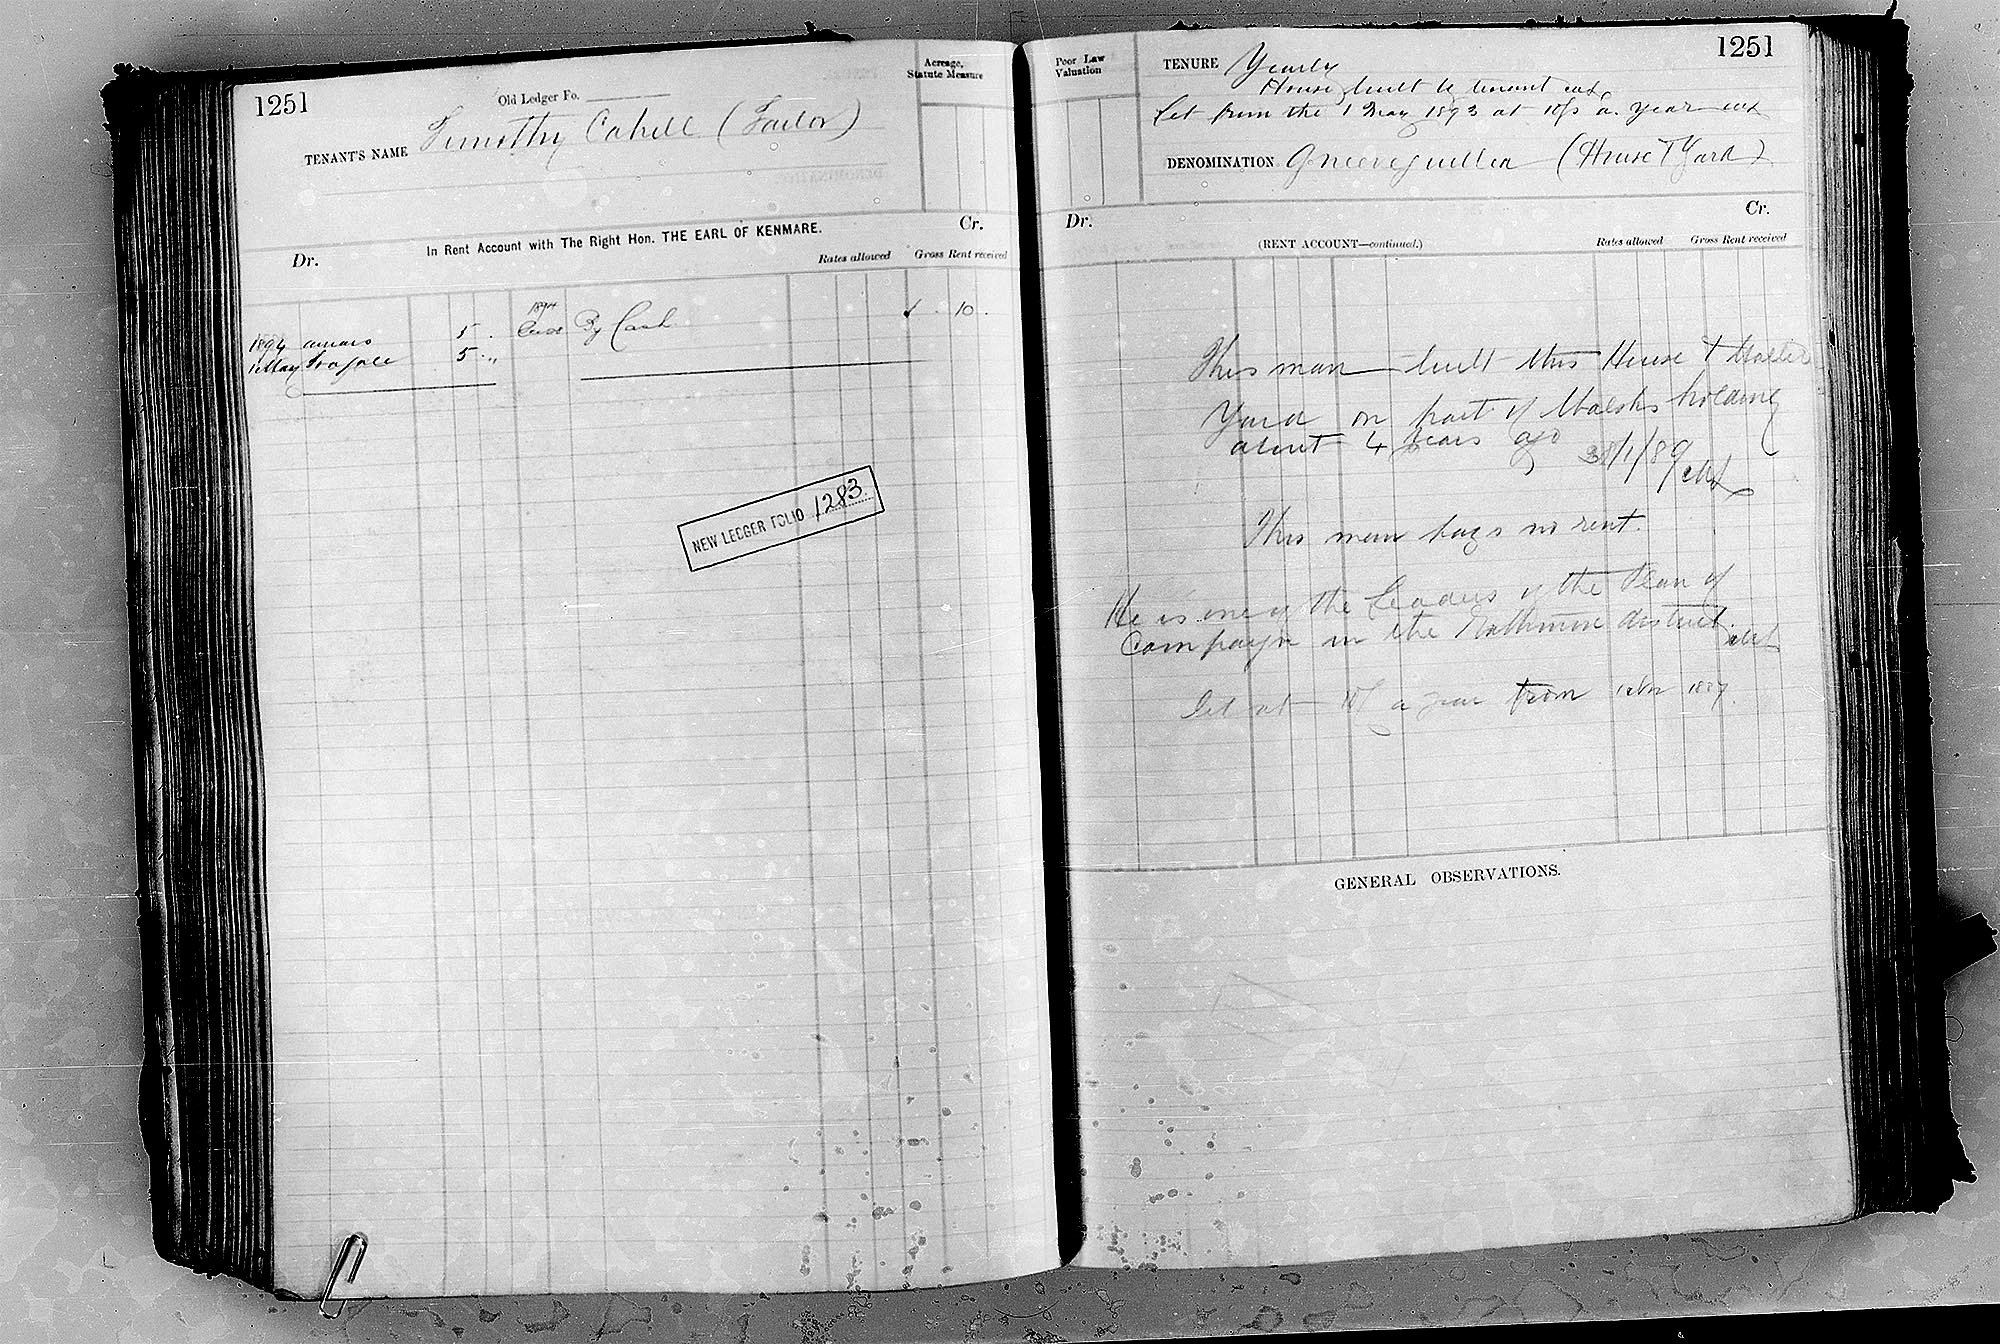 1251
Old Ledger Fo.
TENANT'S NAME Timothy Cahill (Tailor)
Acreage,
Statute Measure
In Rent Account with The Right Hon. THE EARL OF KENMARE.
Dr.
Cr.
Rates allowed
Gross Rent received
1894 arrears 5
1 May 5 „
1894
By Cash 10 .
NEW LEDGER FOLIO 1283
1251
Poor Law
Valuation
TENURE Yearly
House built by tenant
Let from the 1 May 1893 at 10/s a year
DENOMINATION Gneeveguilla (House & Yard)
Dr.
Cr.
(RENT ACCOUNT—continued.)
Rates allowed
Gross Rent received
This man built this House &
Yard on part of Walshs holding
about 4 years ago 31/1/89
This man pays no rent.
He is one of the Leaders of the Plan of
Campaign in the Rathmore district.
Let at 10/ a year from
GENERAL OBSERVATIONS.